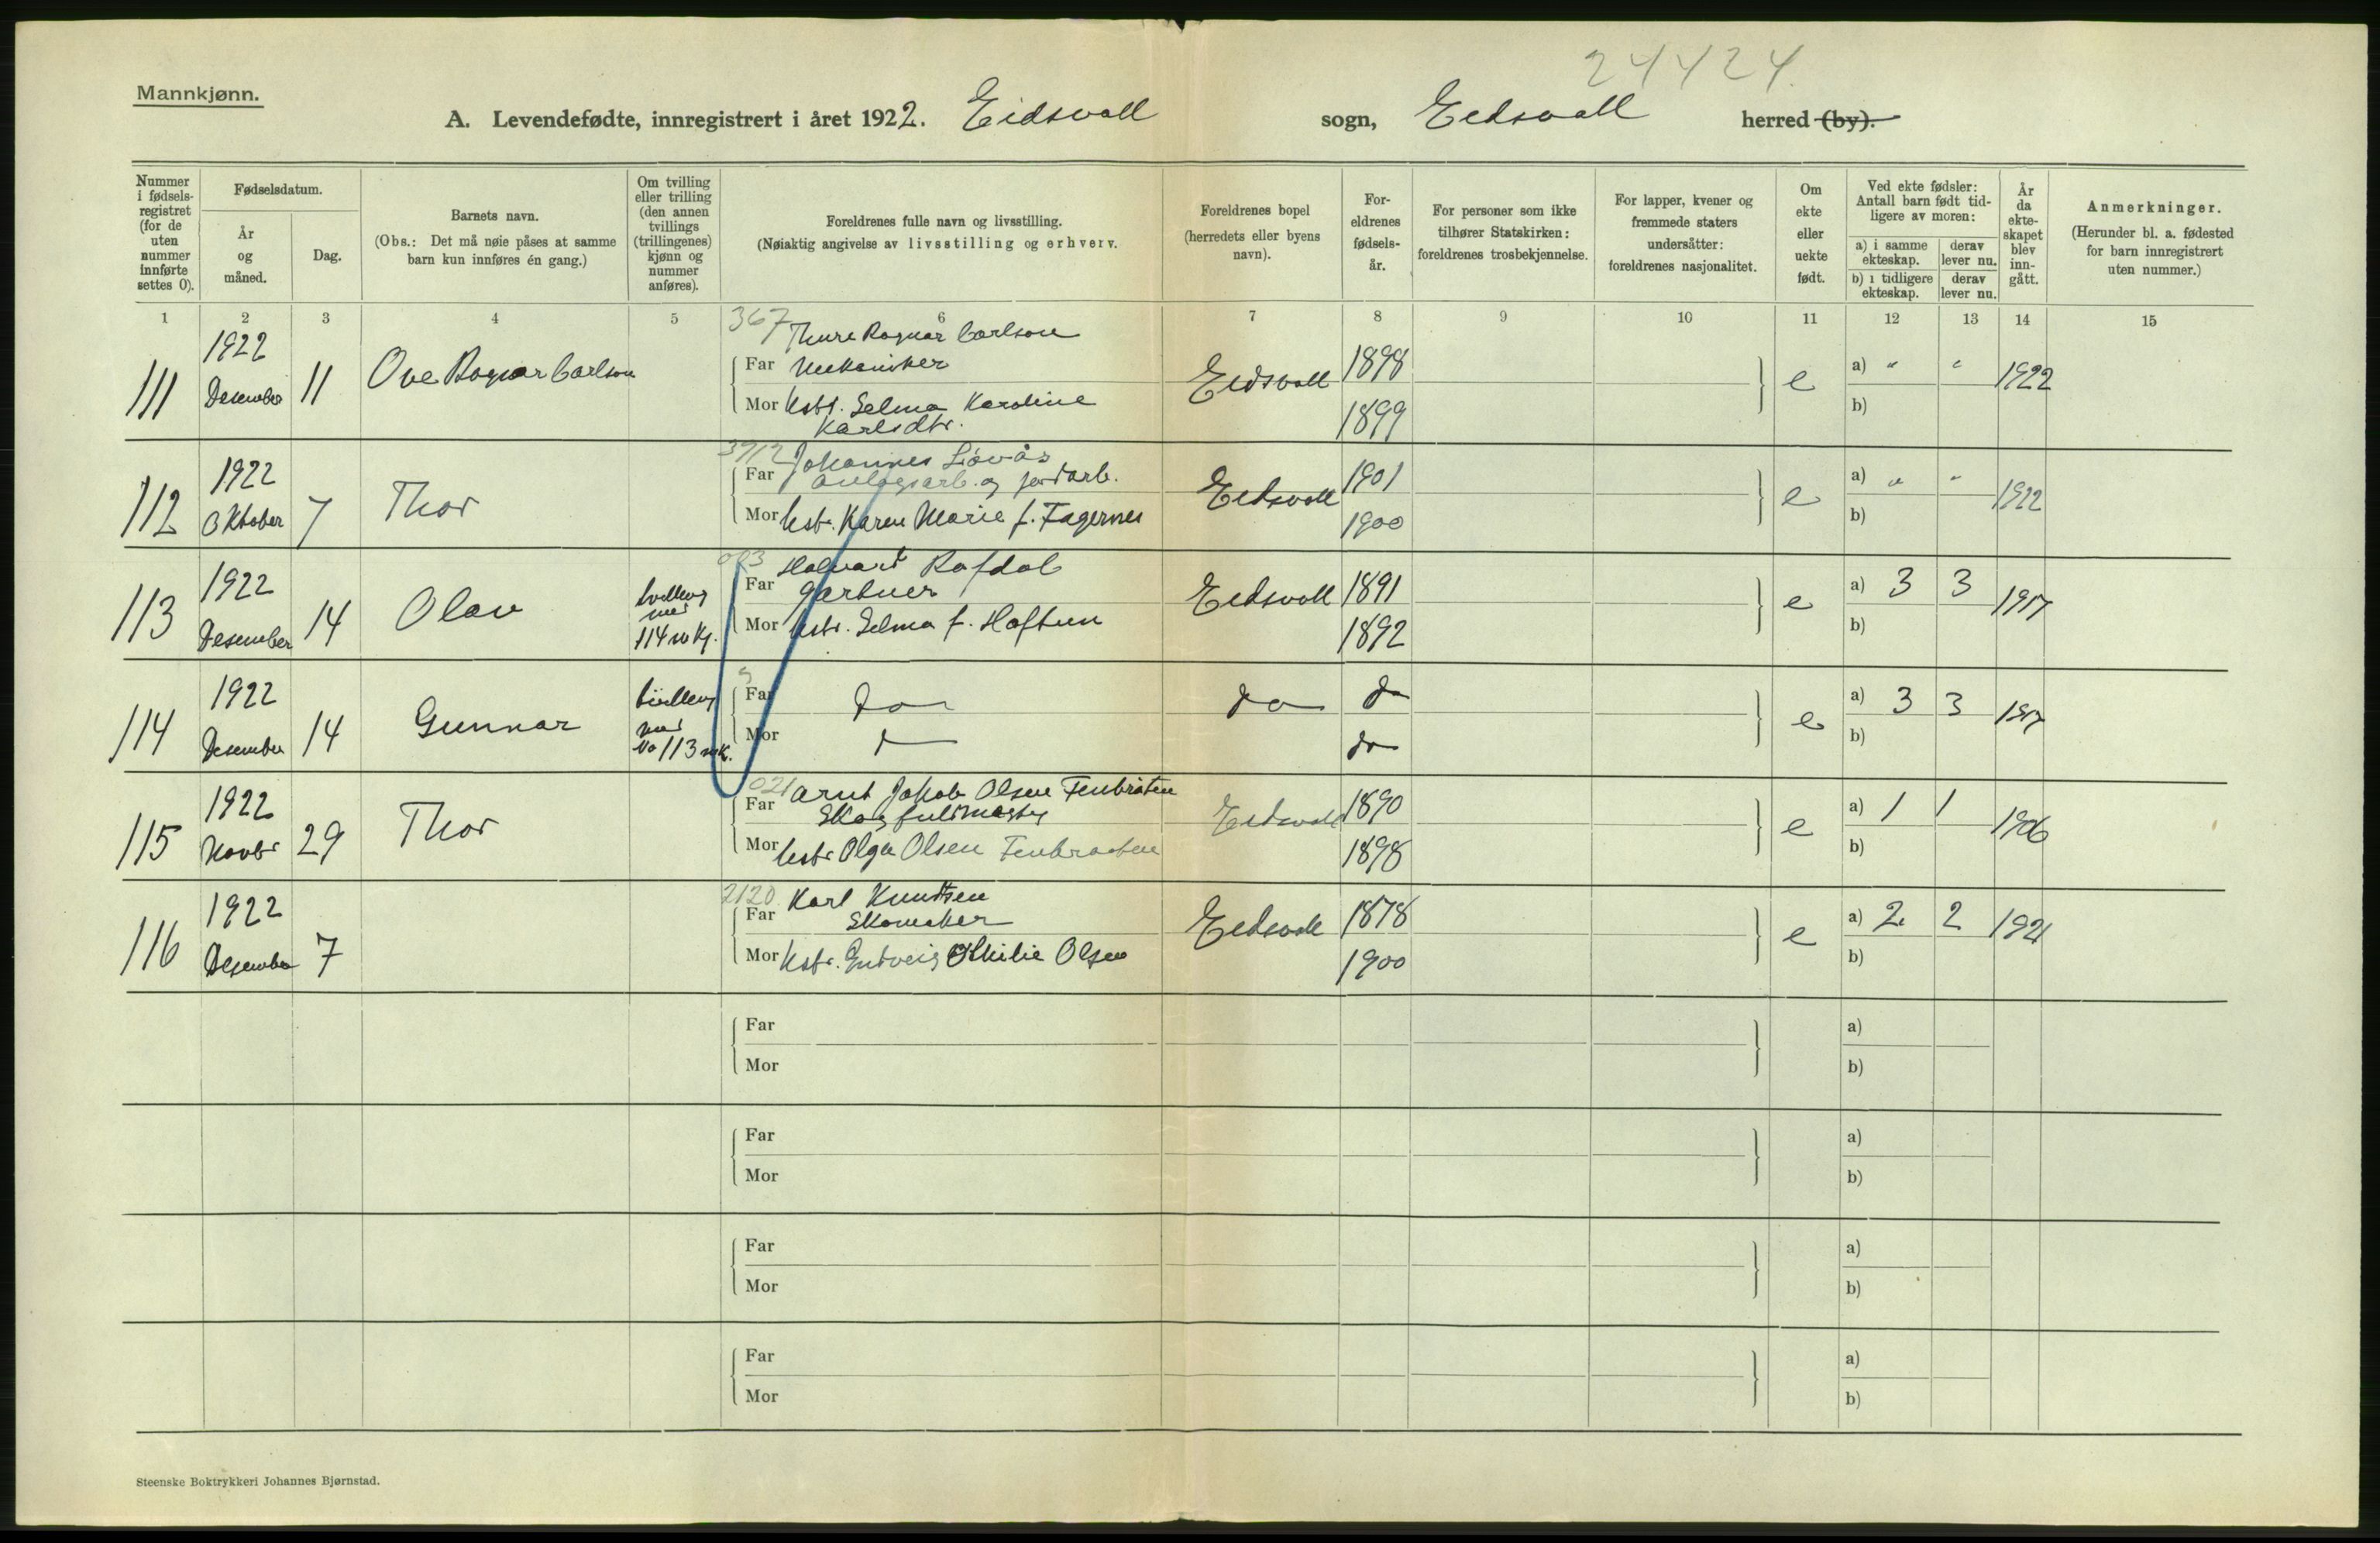 24424.
Mannkjønn.
A. Levendefødte, innregistrert i året 1922. Eidsvoll sogn, Eidsvoll herred (by).
Nummer i fødsels-registret (for de uten nummer innførte settes 0).
Fødselsdatum.
År og måned.
Dag.
Barnets navn.
(Obs.: Det må nøie påses at samme barn kun innføres én gang.)
Om tvilling eller trilling (den annen tvillings (trillingenes) kjønn og nummer anføres).
Foreldrenes fulle navn og livsstilling.
(Nøiaktig angivelse av livsstilling og erhverv.
Foreldrenes bopel (herredets eller byens navn).
For-eldrenes fødsels-år.
For personer som ikke tilhører Statskirken: foreldrenes trosbekjennelse.
For lapper, kvener og fremmede staters undersåtter: foreldrenes nasjonalitet.
Om ekte eller uekte født.
Ved ekte fødsler: Antall barn født tid-ligere av moren:
a) i samme ekteskap. derav lever nu.
b) i tidligere ekteskap. derav lever nu.
År da ekte-skapet blev inn-gått.
Anmerkninger.
(Herunder bl. a. fødested for barn innregistrert uten nummer.)
1 2 3 4 5 6 7 8 9 10 11 12 13 14 15
367 Thure Ragnar Carlson
111 1922 Desember 11 Ove Ragnar Carlson
Far Mekaniker Eidsvoll 1898 e a) " " 1922
Mor Selma Karoline Karlsdtr. 1899 b)
Johannes
112 1922 Oktober 7 Thor
Far anlegsarb. og jordarb. Eidsvoll 1901 e a) " " 1922
Mor Karen Marie f. Fagernes 1900 b)
Halvard Rafdal
113 1922 Desember 14 Olav tvilling med 114 m kj.
Far Gartner Eidsvoll 1891 e a) 3 3 1917
Mor Selma f. Haftun 1892 b)
114 1922 Desember 14 Gunnar tvilling med No 113 mk.
Far do do do e a) 3 3 1917
Mor do b)
021 Arnt Jakob Olsen Fenbråten
115 1922 Novbr 29 Thor
Far Eidsvoll 1890 e a) 1 1
Mor Olga Olsen Fenbraaten 1898 b)
2120 Karl Knudtsen
116 1922 Desember 7
Far Skomaker Eidsvoll 1878 e a) 2 2 1921
Mor Othilie Olsen 1900 b)
Far a)
Mor b)
Far a)
Mor b)
Far a)
Mor b)
Far a)
Mor b)
Steenske Boktrykkeri Johannes Bjørnstad.